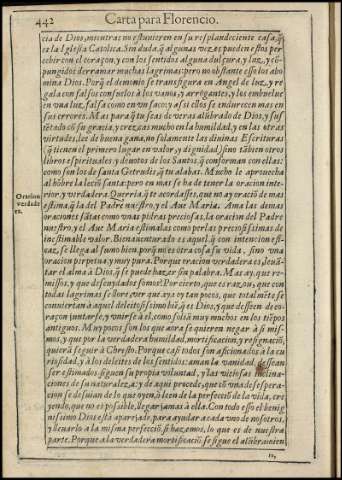 442 Carta para Florencio.
cia de Dios, mientras no estuuieren en su resplandeciente casa, q̃
es la Iglesia Catolica. Sin duda, q̃ algunas vezes pueden estos per
cebir con el coraçon, y con los sentidos alguna dulçura, y luz, y cõ-
pungidos derramar muchas lagrimas: pero no obstante esso los abo
mina Dios. Porq̃ el demonio se transfigura en Angel de luz, y re-
gala con falsos consuelos à los vanos, y arrogantes, y los embuelue
en vna luz falsa como en vn saco; y assi ellos se endurecen mas en
sus errores. Mas para q̃ tu seas de veras alũbrado de Dios, y sus-
tẽtado cõ su gracia, y crezcas mucho en la humildad, y en las otras
virtudes, lee de buena gana, no solamente las diuinas Escrituras
(q̃ tienen el primero lugar en valor, y dignidad) sino tãbien otros
libros espirituales y deuotos de los Santos, q̃ conforman con ellas:
como son los de santa Getrudes, q̃ tu alabas. Mucho le aprouecha
al hõbre la leciõ santa: pero en mas se ha de tener la oracion inte-
rior, y verdadera. Querria, q̃ te acordasses, que no ay oraciõ de mas
Oracion
verdade
ra.
estima, q̃ la del Padre nuestro, y el Aue Maria. Ama las demas
oraciones sãtas como vnas pidras preciosas, la oracion del Padre
nuestro, y el Aue Maria estimalas como perlas preciosissimas de
inestimable valor. Bienauenturado es aquel, q̃ con intencion efi-
caz, se llega al sumo bien, porq̃ no es otra cosa su vida, sino vna
oracion perpetua y muy pura. Porque oracion verdadera es, leuã-
tar el alma à Dios, q̃ se puede hazer sin palabra. Mas ay, que re-
missos, y que descuydados somos! Por cierto, que es razon, que con
todas lagrimas se llore, ver que aya oy tan pocos, que totalmẽte se
conuiertan à aquel deleitosissimo biẽ, q̃ es Dios, y que desseen de co-
raçon juntarse, y vnirse à el, como solia muchos en los tiẽpos
antiguos. Muy pocos son los que aora se quieren negar à si mis-
mos, y que por la verdadera humildad, mortificacion, y resignaciõ,
quierã seguir à Christo. Porque casi todos son aficionados à la cu
riosidad, y à los deleites de los sentidos: aman la vanidad, dessean
ser estimados, siguen su propia voluntad, y las viciosas inclina-
ciones de su naturaleza: y de aqui procede, que cõ vna desespera-
cion se desuian de lo que oyen, ò leen de la perfecciõ de la vida, cre-
yendo, que no es possible, llegar jamas à ella. Con todo esso el benig
nissimo Dios està aparejado para ayudar à cada vno de nosotros,
y lleuarlo à la misma perfecciõ, si hazemos, lo que es de nuestra
parte. Porque à la verdadera mortificaciõ se sigue el alũbramien
to,